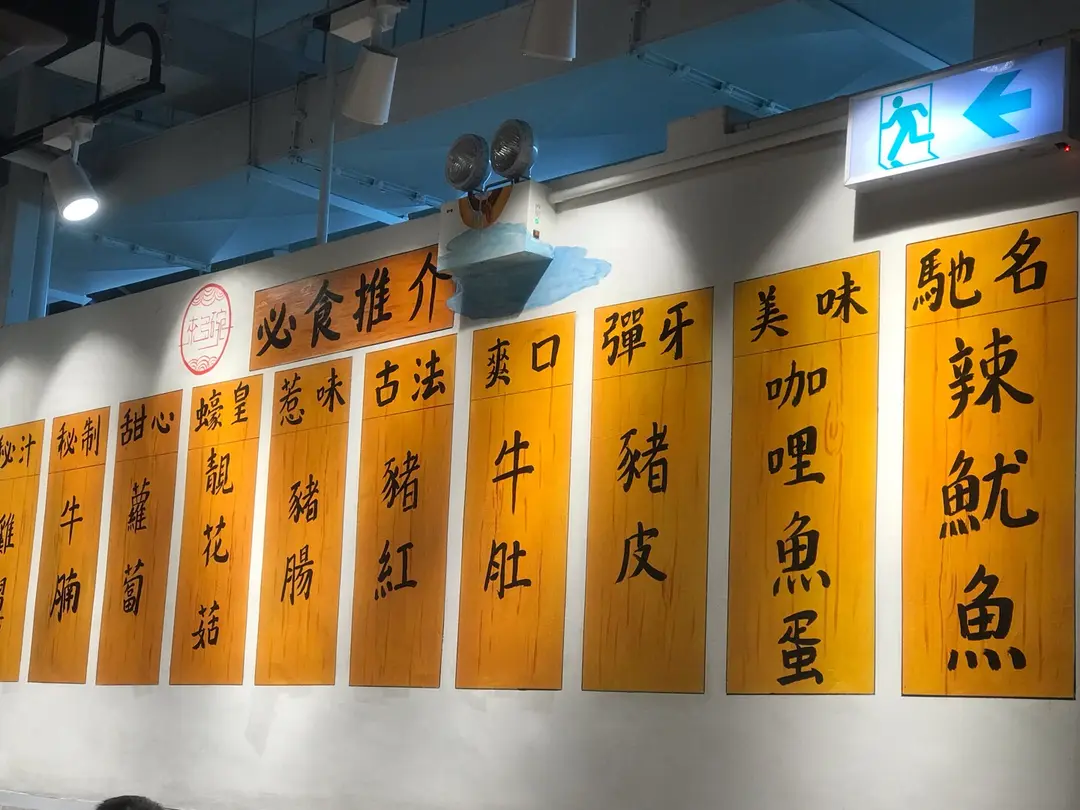 必食推介
秘汁
雞
秘制
牛腩
甜心
蘿蔔
蠔皇
靚花菇
惹味
豬腸
古法
豬紅
爽口
牛肚
彈牙
豬皮
美味
咖哩魚蛋
馳名
辣魷魚